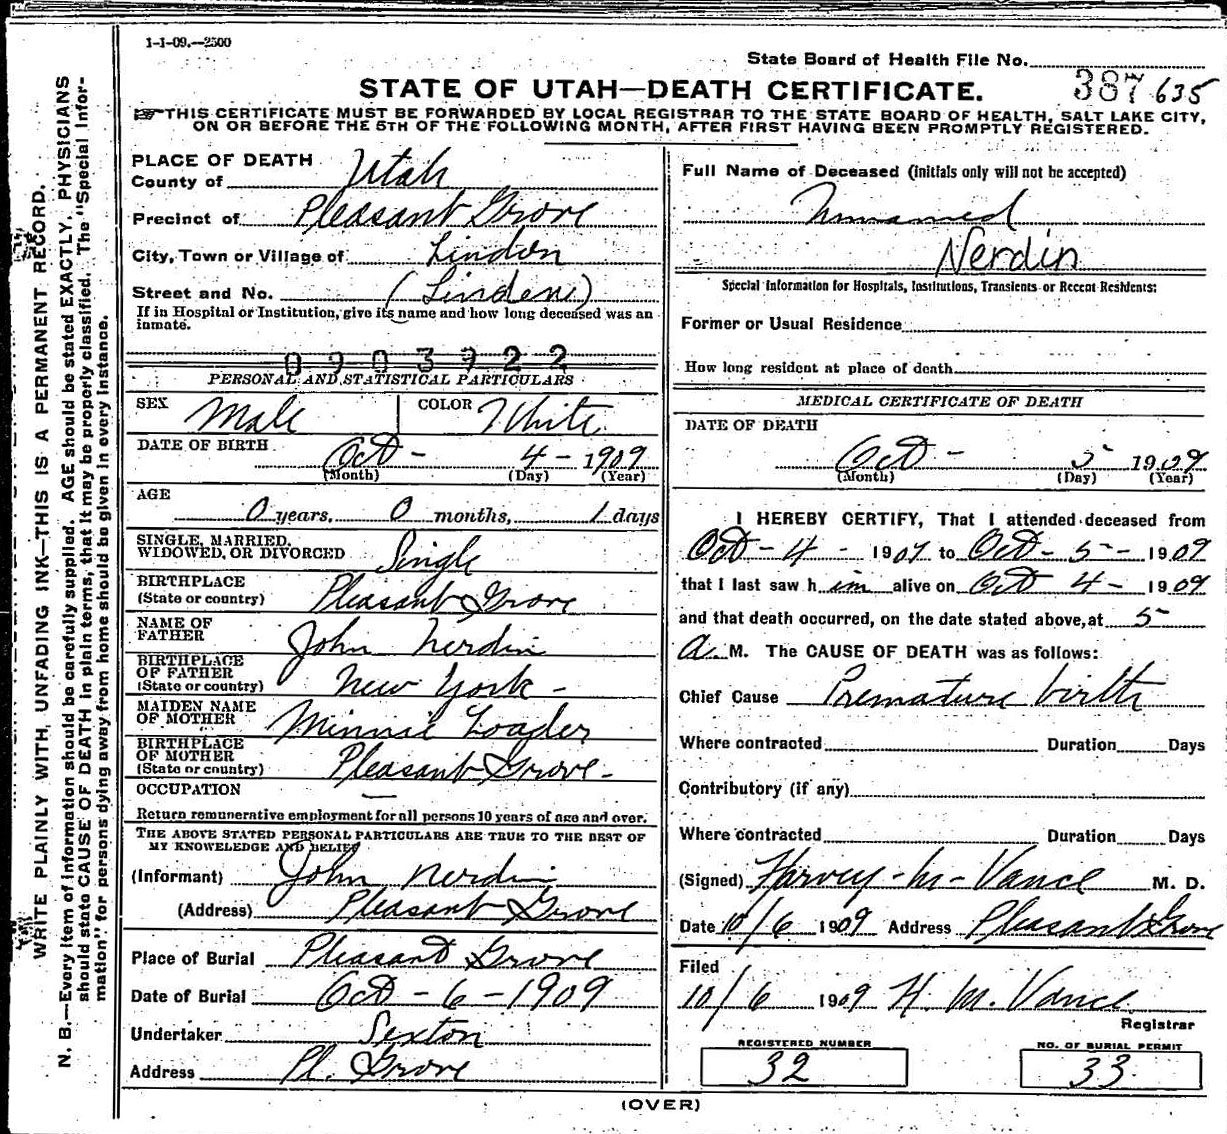 1-1-09.—2500
State Board of Health File No.
STATE OF UTAH—DEATH CERTIFICATE.
387 635
THIS CERTIFICATE MUST BE FORWARDED BY LOCAL REGISTRAR TO THE STATE BOARD OF HEALTH, SALT LAKE CITY,
ON OR BEFORE THE 5TH OF THE FOLLOWING MONTH, AFTER FIRST HAVING BEEN PROMPTLY REGISTERED.
WRITE PLAINLY WITH UNFADING INK—THIS IS A PERMANENT RECORD.
N. B.—Every item of information should be carefully supplied. AGE should be stated EXACTLY. PHYSICIANS
should state CAUSE OF DEATH in plain terms, that it may be properly classified. The "Special Infor-
mation" for persons dying away from home should be given in every instance.
PLACE OF DEATH
County of Utah
Precinct of Pleasant Grove
City, Town or Village of Lindon
Street and No. (Linden)
If in Hospital or Institution, give its name and how long deceased was an
inmate.
0903922
PERSONAL AND STATISTICAL PARTICULARS
SEX Male COLOR White
DATE OF BIRTH
Oct - 4 - 1909
(Month) (Day) (Year)
AGE
0 years, 0 months, 1 days
SINGLE, MARRIED,
WIDOWED, OR DIVORCED Single
BIRTHPLACE
(State or country) Pleasant Grove
NAME OF
FATHER John Nerdin
BIRTHPLACE
OF FATHER
(State or country) New York -
MAIDEN NAME
OF MOTHER Minnie Loader
BIRTHPLACE
OF MOTHER
(State or country) Pleasant Grove -
OCCUPATION —
Return remunerative employment for all persons 10 years of age and over.
THE ABOVE STATED PERSONAL PARTICULARS ARE TRUE TO THE BEST OF
MY KNOWELEDGE AND BELIEF
(Informant) John Nerdin
(Address) Pleasant Grove
Place of Burial Pleasant Grove
Date of Burial Oct - 6 - 1909
Undertaker Sexton
Address Pl. Grove
Full Name of Deceased (Initials only will not be accepted)
Unnamed
Nerdin
Special Information for Hospitals, Institutions, Transients or Recent Residents:
Former or Usual Residence
How long resident at place of death
MEDICAL CERTIFICATE OF DEATH
DATE OF DEATH
Oct - 5 1909
(Month) (Day) (Year)
I HEREBY CERTIFY, That I attended deceased from
Oct - 4 - 1909 to Oct - 5 - 1909
that I last saw h im alive on Oct 4 - 1909
and that death occurred, on the date stated above, at 5
a. M. The CAUSE OF DEATH was as follows:
Chief Cause Premature birth
Where contracted Duration Days
Contributory (if any)
Where contracted Duration Days
(Signed) Harvey - M - Vance M. D.
Date 10/6 1909 Address Pleasant Grove
Filed
10/6 1909 H. M. Vance
Registrar
REGISTERED NUMBER
32
NO. OF BURIAL PERMIT
33
(OVER)